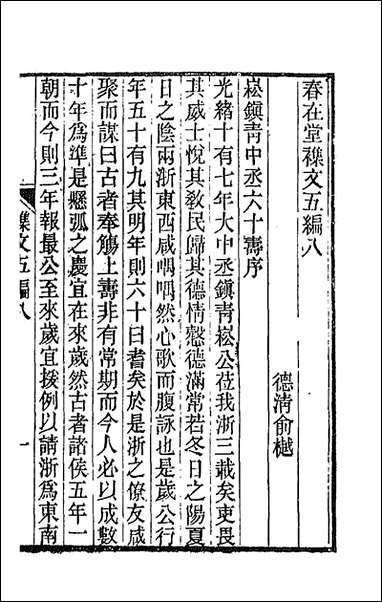 春在堂襍文五編八
德淸俞樾
崧鎭靑中丞六十壽序
光緖十有七年大中丞鎭靑崧公莅我浙三載矣吏畏
其威士悅其敎民歸其德情慤德滿常若冬日之陽夏
日之陰兩浙東西咸喁喁然心歌而腹詠也是歲公行
年五十有九其明年則六十曰耆矣於是浙之僚友咸
聚而謀曰古者奉觴上壽非有常期而今人必以成數
十年爲準是懸弧之慶宜在來歲然古者諸侯五年一
朝而今則三年報最公至來歲宜援例以請浙爲東南
襍文五編八
一